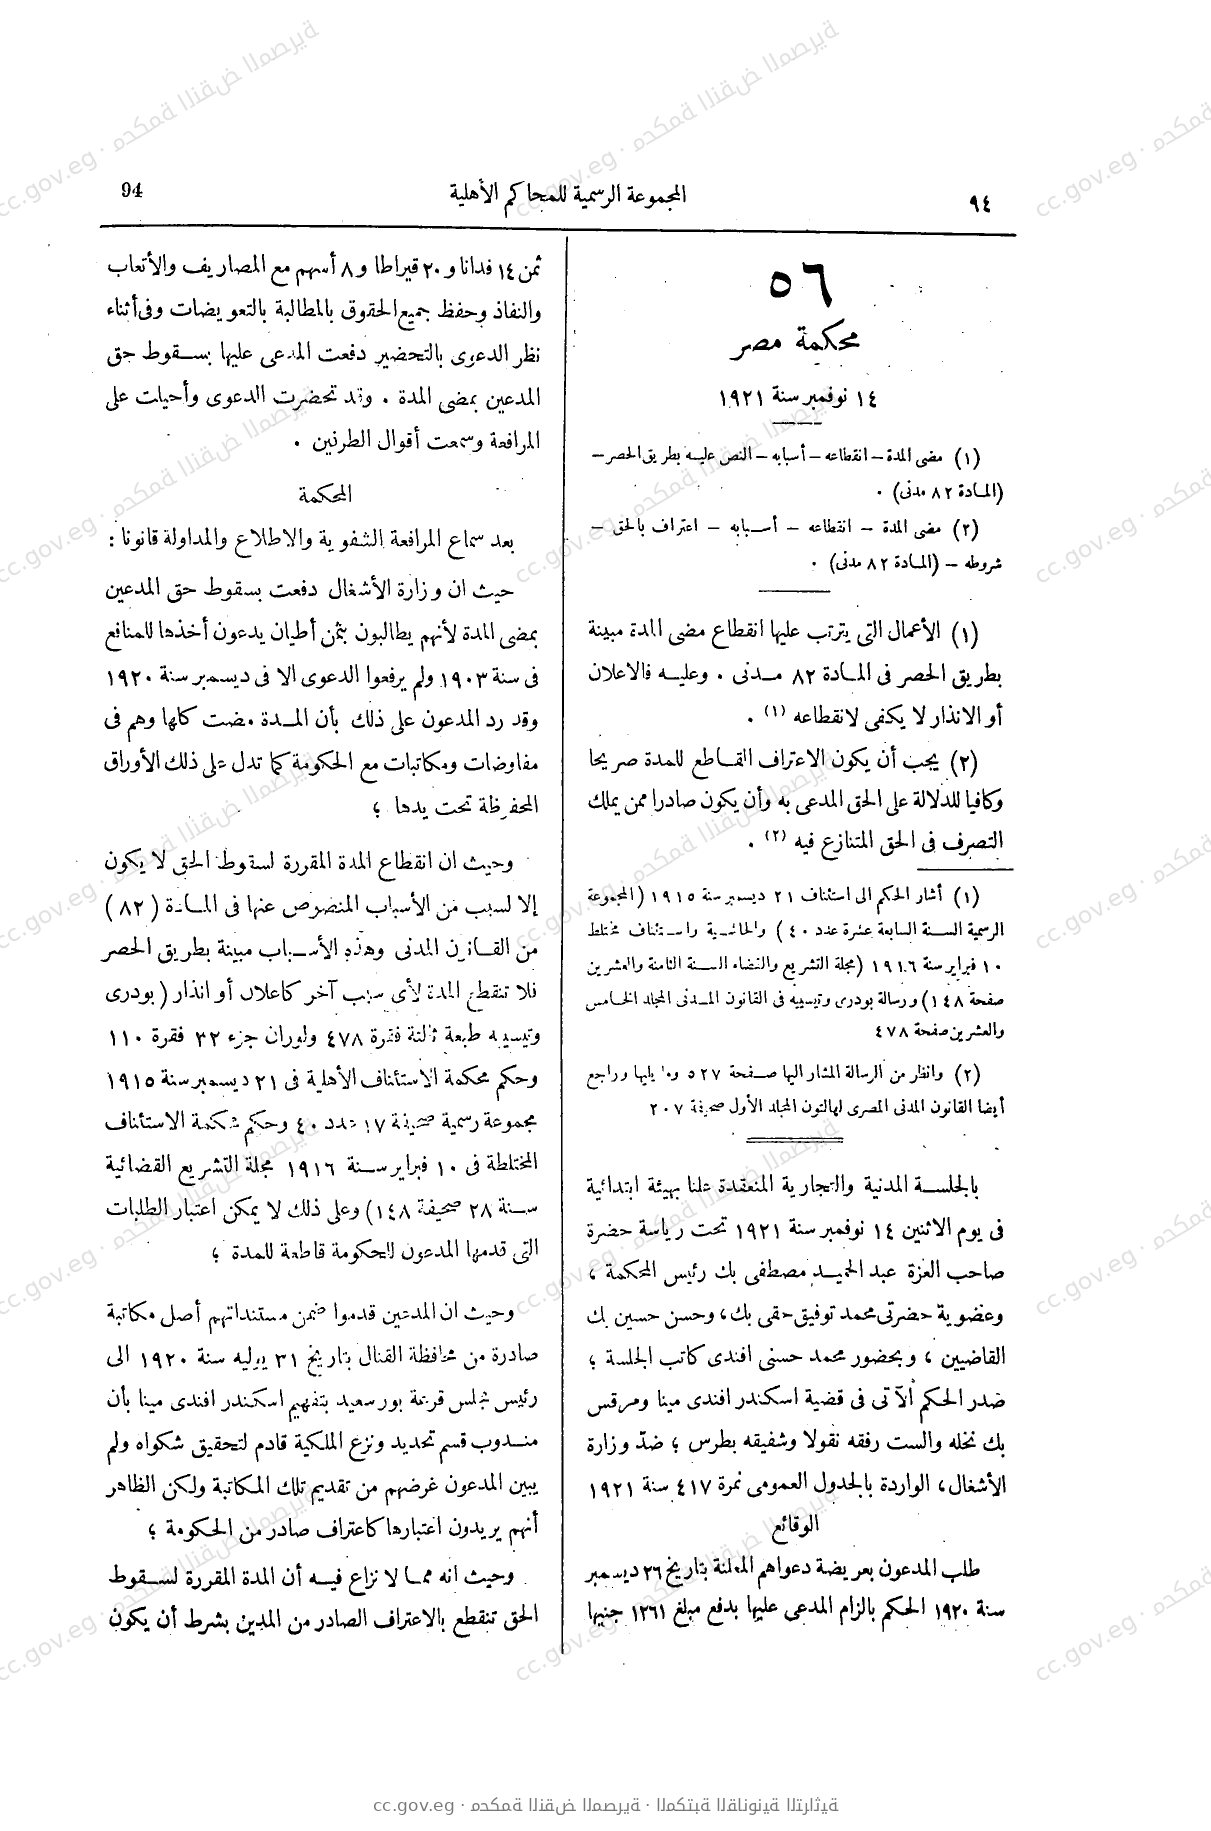 ٩٤
المجموعة الرسمية للمحاكم الأهلية
94
٥٦
محكمة مصر
١٤ نوفمبر سنة ١٩٢١
(١) مضى المدة – انقطاعه – أسبابه – النص عليه بطريق الحصر –
(المادة ٨٢ مدنى) .
(٢) مضى المدة – انقطاعه – أسبابه – اعتراف بالحق –
شروطه – (المادة ٨٢ مدنى) .
(١) الأعمال التى يترتب عليها انقطاع مضى المدة مبينة
بطريق الحصر فى المادة ٨٢ مدنى . وعليه فالاعلان
أو الانذار لا يكفى لانقطاعه (١) .
(٢) يجب أن يكون الاعتراف القاطع للمدة صريحا
وكافيا للدلالة على الحق المدعى به وأن يكون صادرا ممن يملك
التصرف فى الحق المتنازع فيه (٢) .
(١) أشار الحكم الى استئناف ٢١ ديسمبر سنة ١٩١٥ (المجموعة
الرسمية السنة السابعة عشرة عدد ٤٠) والحاشية واستئناف مختلط
١٠ فبراير سنة ١٩١٦ (مجلة التشريع والقضاء السنة الثامنة والعشرين
صفحة ١٤٨) ورسالة بودرى وتيسييه فى القانون المدنى المجلد الخامس
والعشرين صفحة ٤٧٨
(٢) وانظر من الرسالة المشار اليها صفحة ٥٢٧ وما يليها وراجع
أيضا القانون المدنى المصرى لهالتون المجلد الأول صحيفة ٢٠٧
بالجلسة المدنية والتجارية المنعقدة علنا بهيئة ابتدائية
فى يوم الاثنين ١٤ نوفمبر سنة ١٩٢١ تحت رياسة حضرة
صاحب العزة عبد الحميد مصطفى بك رئيس المحكمة ،
وعضوية حضرتى محمد توفيق حقى بك ، وحسن حسين بك
القاضيين ، وبحضور محمد حسنى افندى كاتب الجلسة ؛
صدر الحكم الآتى فى قضية اسكندر افندى مينا ومرقس
بك نخله والست رفقه نقولا وشفيقه بطرس ؛ ضدّ وزارة
الأشغال ، الواردة بالجدول العمومى نمرة ٤١٧ سنة ١٩٢١
الوقائع
طلب المدعون بعريضة دعواهم المعلنة بتاريخ ٢٦ ديسمبر
سنة ١٩٢٠ الحكم بالزام المدعى عليها بدفع مبلغ ١٣٦١ جنيها
ثمن ١٤ فدانا و ٢٠ قيراطا و ٨ أسهم مع المصاريف والأتعاب
والنفاذ وحفظ جميع الحقوق بالمطالبة بالتعويضات وفى أثناء
نظر الدعوى بالتحضير دفعت المدعى عليها بسقوط حق
المدعين بمضى المدة . وقد تحضرت الدعوى وأحيلت على
المرافعة وسمعت أقوال الطرفين .
المحكمة
بعد سماع المرافعة الشفوية والاطلاع والمداولة قانونا :
حيث ان وزارة الأشغال دفعت بسقوط حق المدعين
بمضى المدة لأنهم يطالبون بثمن أطيان يدعون أخذها للمنافع
فى سنة ١٩٠٣ ولم يرفعوا الدعوى الا فى ديسمبر سنة ١٩٢٠
وقد رد المدعون على ذلك بأن المدة مضت كلها وهم فى
مفاوضات ومكاتبات مع الحكومة كما تدل على ذلك الأوراق
المحفوظة تحت يدها ؛
وحيث ان انقطاع المدة المقررة لسقوط الحق لا يكون
إلا لسبب من الأسباب المنصوص عنها فى المادة ( ٨٢ )
من القانون المدنى وهذه الأسباب مبينة بطريق الحصر
فلا تنقطع المدة لأى سبب آخر كاعلان أو انذار ( بودرى
وتيسييه طبعة ثالثة فقرة ٤٧٨ ولوران جزء ٣٢ فقرة ١١٠
وحكم محكمة الاستئناف الأهلية فى ٢١ ديسمبر سنة ١٩١٥
مجموعة رسمية صحيفة ١٧ عدد ٤٠ وحكم محكمة الاستئناف
المختلطة فى ١٠ فبراير سنة ١٩١٦ مجلة التشريع القضائية
سنة ٢٨ صحيفة ١٤٨) وعلى ذلك لا يمكن اعتبار الطلبات
التى قدمها المدعون للحكومة قاطعة للمدة ؛
وحيث ان المدعين قدموا ضمن مستنداتهم أصل مكاتبة
صادرة من محافظة القنال بتاريخ ٣١ يوليه سنة ١٩٢٠ الى
رئيس مجلس قرعة بور سعيد بتفهيم اسكندر افندى مينا بأن
مندوب قسم تحديد ونزع الملكية قادم لتحقيق شكواه ولم
يبين المدعون غرضهم من تقديم تلك المكاتبة ولكن الظاهر
أنهم يريدون اعتبارها كاعتراف صادر من الحكومة ؛
وحيث انه مما لا نزاع فيه أن المدة المقررة لسقوط
الحق تنقطع بالاعتراف الصادر من المدين بشرط أن يكون
cc.gov.eg · محكمة النقض المصرية · المكتبة القانونية التراثية